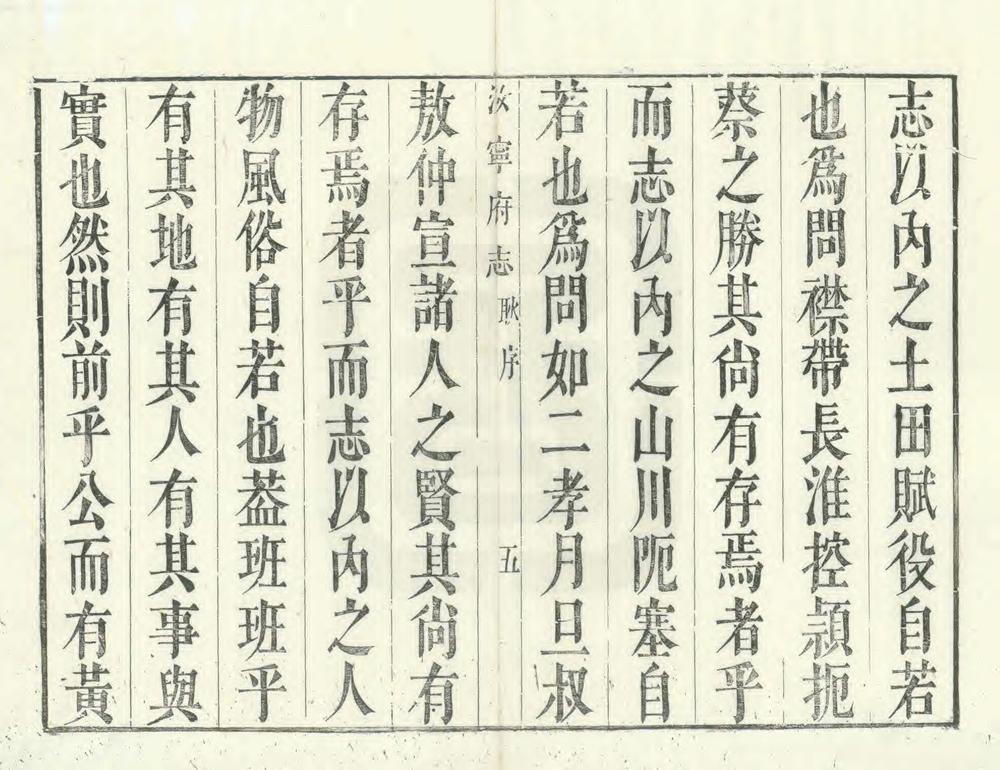 志以內之土田賦役自若
也爲問襟帶長淮控潁扼
蔡之勝其尙有存焉者乎
而志以內之山川阨塞自
若也爲問如二孝月旦叔
汝寧府志 耿序 五
敖仲宣諸人之賢其尙有
存焉者乎而志以內之人
物風俗自若也葢班班乎
有其地有其人有其事與
實也然則前乎公而有黃